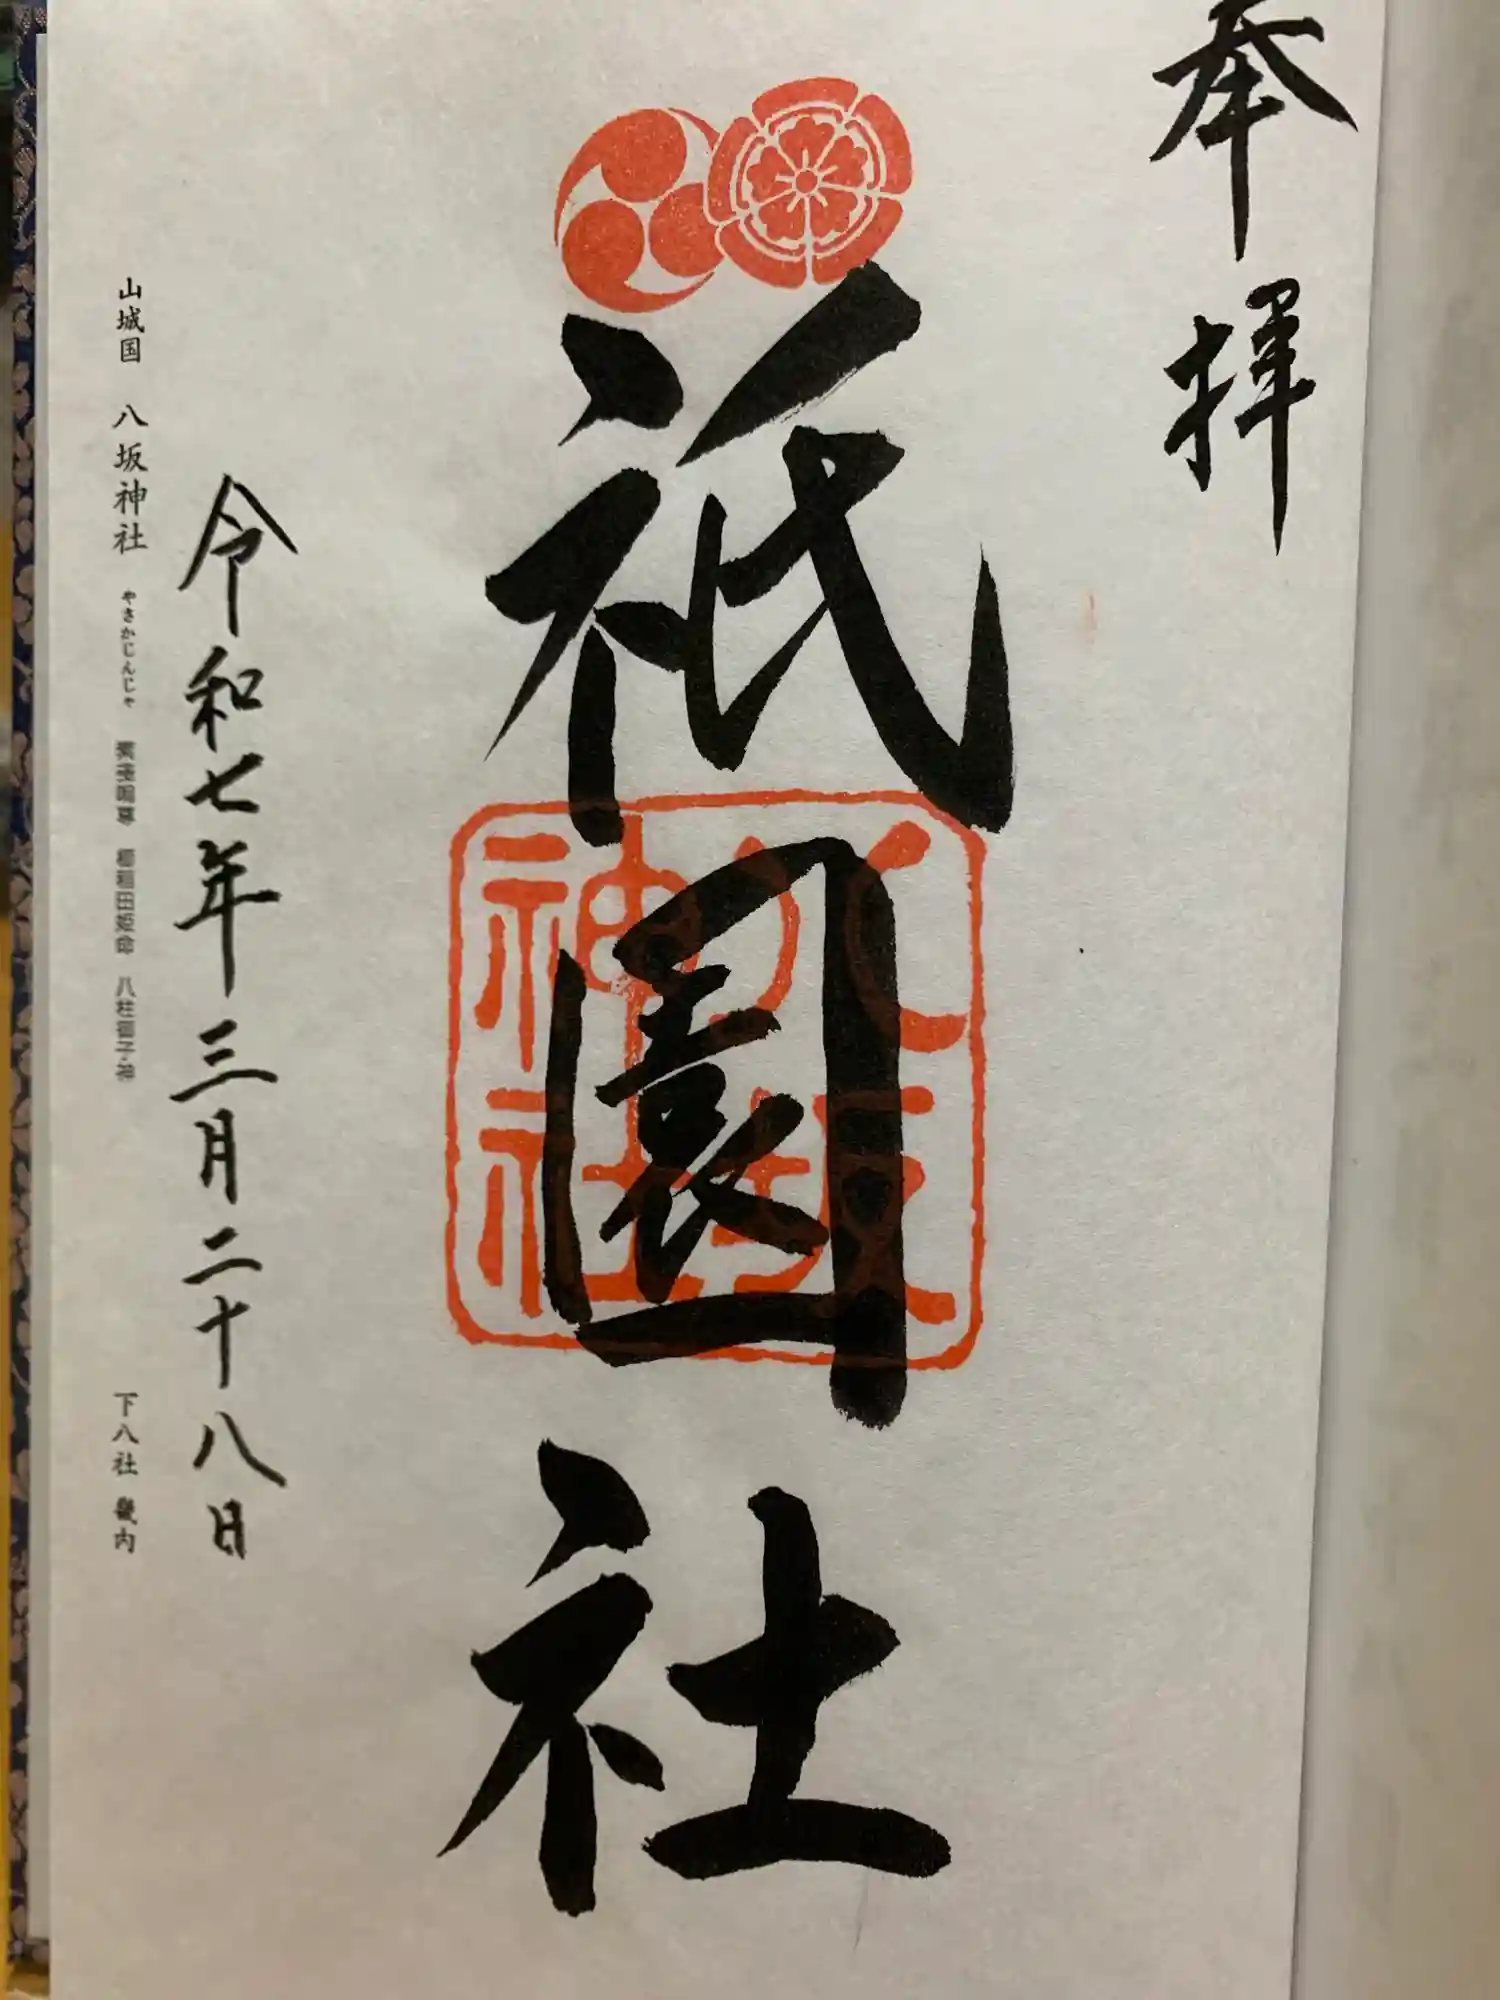 奉拝
祇園社
八坂神社
令和七年三月二十八日
山城国 八坂神社 やさかじんじゃ 素戔嗚尊 櫛稲田姫命 八柱御子神 下八社 畿内